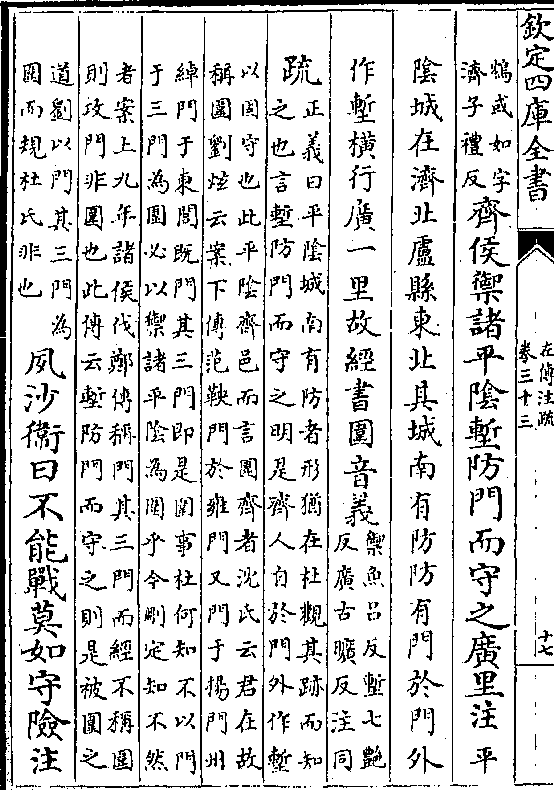 欽定四庫全書
左傳注疏
卷三十三
十七
鴆或如字
濟子禮反
齊侯禦諸平陰塹防門而守之廣里注平
陰城在濟北盧縣東北其城南有防防有門於門外
作塹橫行廣一里故經書圍音義
禦魚呂反塹七艷
反廣古曠反注同
疏
正義曰平陰城南有防者形猶在杜觀其跡而知
之也言塹防門而守之明是齊人自於門外作塹
以固守也此平陰齊邑而言圍齊者沈氏云君在故
稱圍劉炫云案下傳范鞅門於雍門又門于揚門州
綽門于東閭既門其三門即是圍事杜何知不以門
于三門為圍必以禦諸平陰為圍乎今刪定知不然
者案上九年諸侯伐鄭傳稱門其三門而經不稱圍
則攻門非圍也此傳云塹防門而守之則是被圍之
道劉以門其三門為
圍而規杜氏非也
夙沙衛曰不能戰莫如守險注